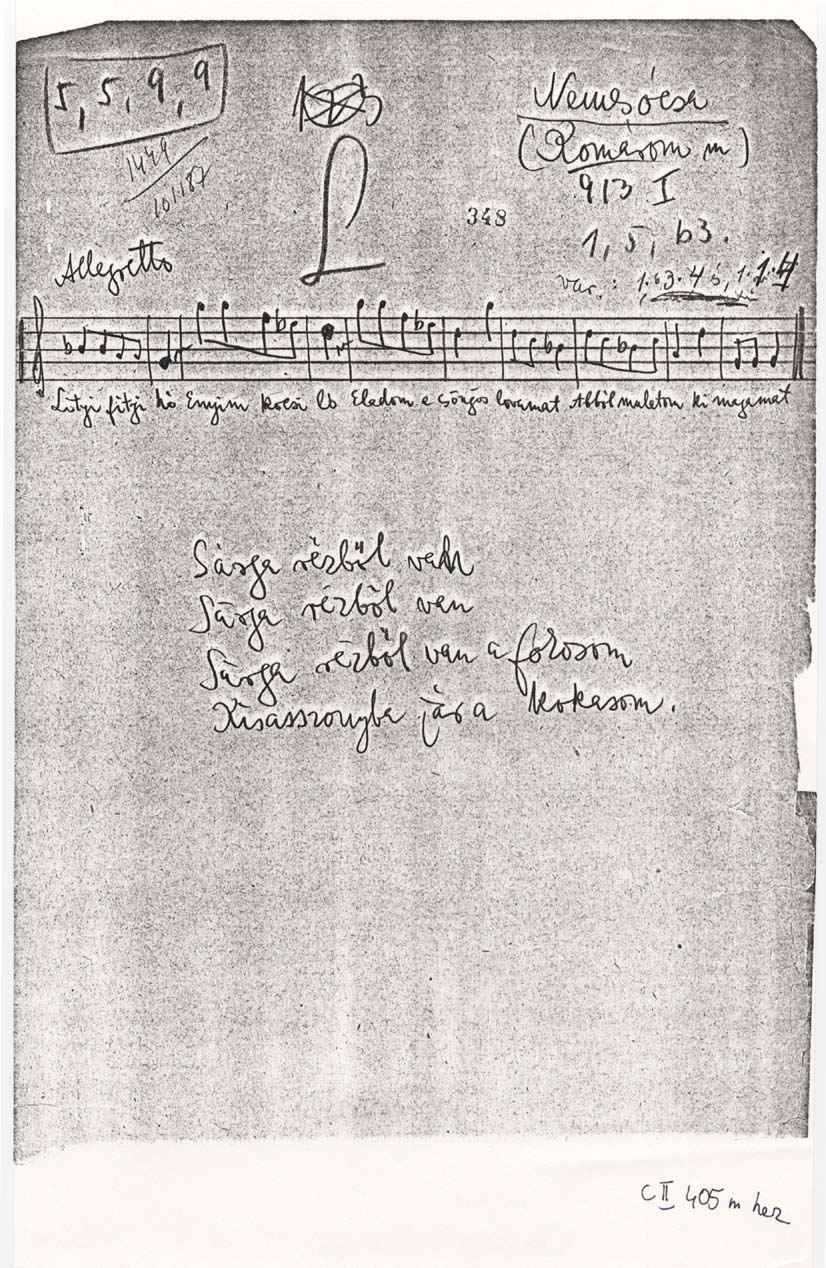 5, 5, 9, 9
1449
101187
L
348
Nemesócsa
(Komárom m)
913 I
1, 5, b3.
var.:
Allegretto
Lityi fityi hó Ennyim kocsi ló Eladom a csöngős lovamat Abból mulatom ki magamat
Sárga rézből van
Sárga rézből van
Sárga rézből van a forosom
Kisasszonyba jár a kokasom.
C II 405 m her